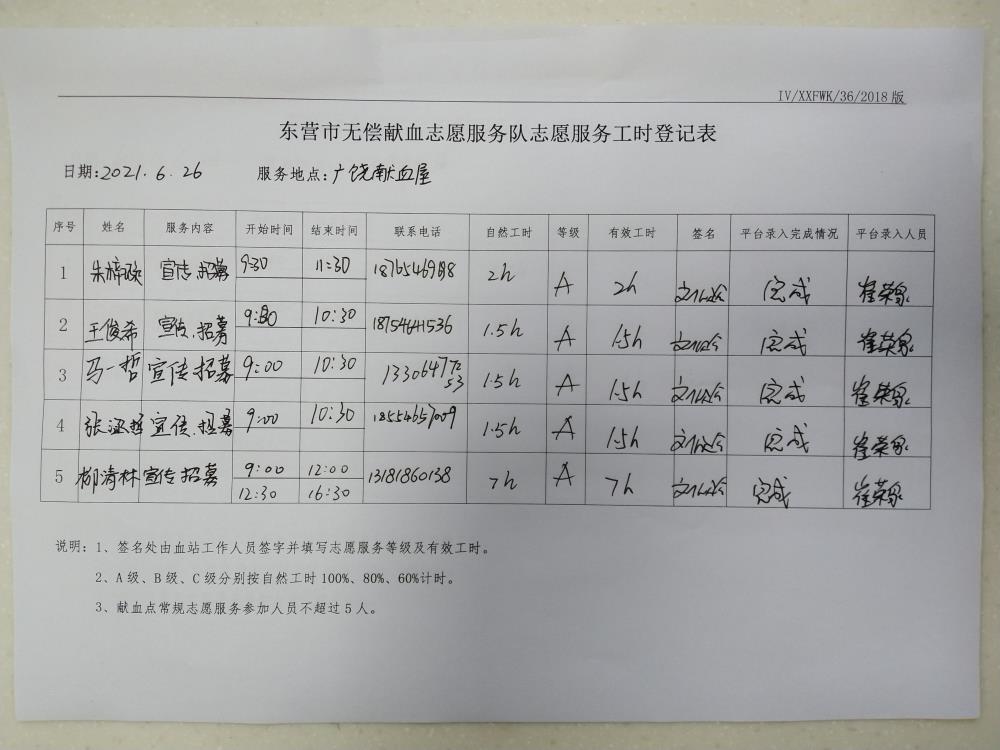 IV/XXFWK/36/2018版
东营市无偿献血志愿服务队志愿服务工时登记表
日期:2021.6.26 服务地点:广饶献血屋
序号 姓名 服务内容 开始时间 结束时间 联系电话 自然工时 等级 有效工时 签名 平台录入完成情况 平台录入人员
1 宣传、招募 9:30 11:30 2h A 2h 完成 崔荣泉
2 王俊希 宣传、招募 10:30 18754641536 1.5h A 1.5h 完成 崔荣泉
3 马一哲 宣传、招募 9:00 10:30 13306477253 1.5h A 1.5h 完成 崔荣泉
4 宣传、招募 9:00 10:30 18554657009 1.5h A 1.5h 完成 崔荣泉
5 柳清林 宣传招募 9:00 12:00 13181860138 7h A 7h 完成 崔荣泉
12:30 16:30
说明: 1、签名处由血站工作人员签字并填写志愿服务等级及有效工时。
2、A级、B级、C级分别按自然工时100%、80%、60%计时。
3、献血点常规志愿服务参加人员不超过5人。